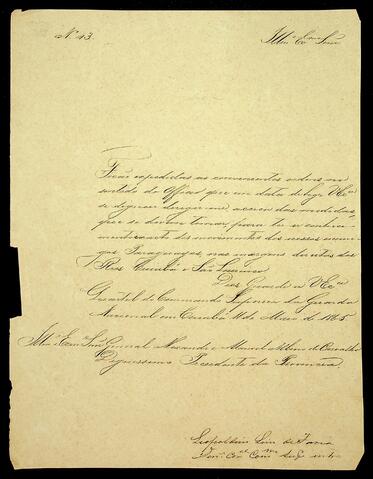 N.º 43.
Illm.º e Exm.º Snr.
Ficão expedidas as convenientes ordens no
sentido do Officio que em data de hoje V Ex.cia
se dignou dirigir-me, acerca das medidas,
que se devem tomar para ter conheci-
mento exacto dos movimentos dos nossos inimi-
gos Paraguayos, nas margens direitas dos
Rios Cuiabá e São Lourenço
Deus Guarde a V Ex.cia
Quartel do Commando Superior da Guarda
Nacional em Cuiabá de Maio de 1865
Illm.º e Exm.º Snr. General Alexandre Manoel Albino de Carvalho
Dignissimo Presidente da Provincia.
Leopoldino Lino de Faria
Ten.e Cor.el Com.e Sup.or